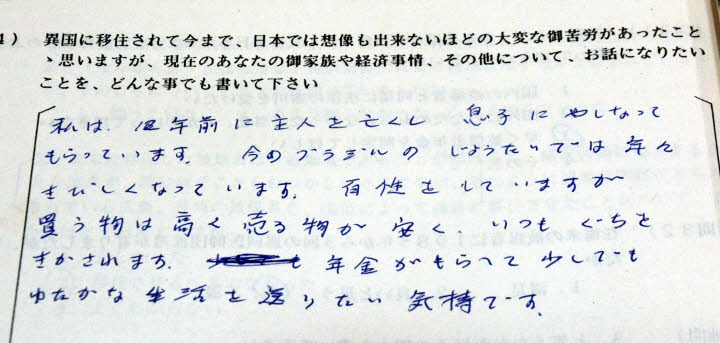 4) 異国に移住されて今まで、日本では想像も出来ないほどの大変な御苦労があったこと
ゝ思いますが、現在のあなたの御家族や経済事情、その他について、お話になりたい
ことを、どんな事でも書いて下さい
私は、12年前に主人を亡くし、息子にやしなって
もらっています。今のブラジルのじょうたいでは年々
きびしくなっています。百性をしていますが
買う物は高く売る物が安く、いつもぐちを
きかされます。も年金がもらへて少しでも
ゆたかな生活を送りたい気持です。